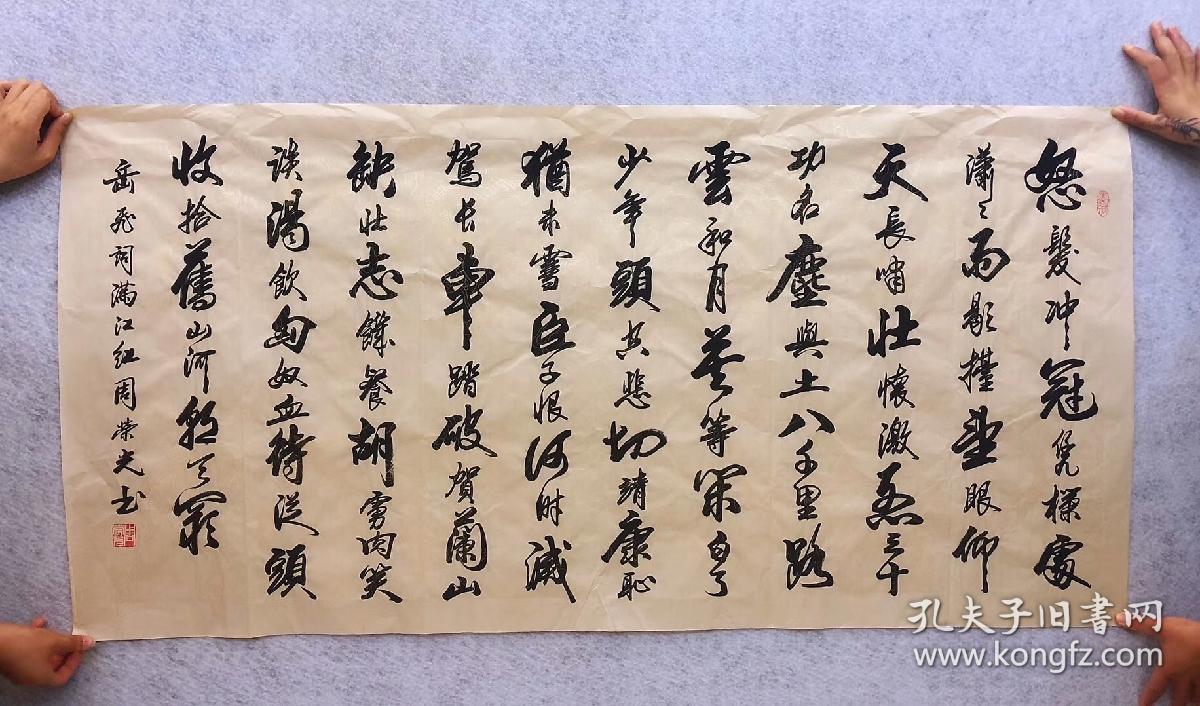 怒髮冲冠凭欄處
瀟々雨歇擡望眼仰
天長嘯壮懷激烈三十
功名塵與土八千里路
雲和月莫等閑白了
少年頭空悲切靖康恥
猶未雪臣子恨何時滅
駕长車踏破賀蘭山
缺壮志饑餐胡虜肉笑
談渴飲匈奴血待從頭
收拾舊山河朝天闕
岳飛词满江红周荣光书
孔夫子旧書网
www.kongfz.com